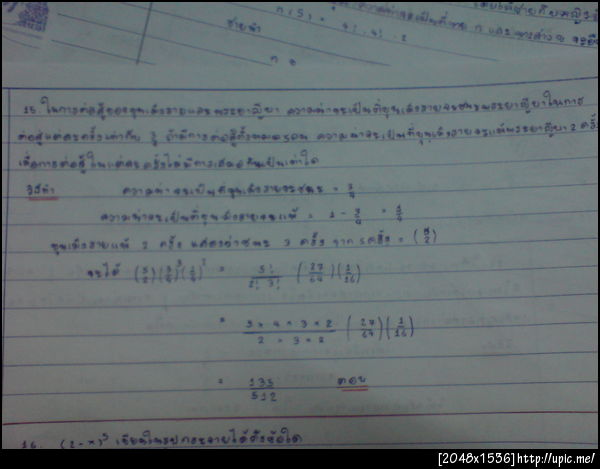 n(S) = 4! 4! 2
15. ในการต่อสู้ของขุนเม็งรายและพระยาญีบา ความน่าจะเป็นที่ขุนเม็งรายจะชนะพระยาญีบาในการ
ต่อสู้แต่ละครั้งเท่ากับ 3/4 ถ้ามีการต่อสู้ทั้งหมด 5 หน ความน่าจะเป็นที่ขุนเม็งรายจะแพ้พระยาญีบา 2 ครั้ง
เมื่อการต่อสู้ในแต่ละครั้งไม่มีการเสมอกันเป็นเท่าใด
วิธีทำ ความน่าจะเป็นที่ขุนเม็งรายจะชนะ = 3/4
ความน่าจะเป็นที่ขุนเม็งรายจะแพ้ = 1 - 3/4 = 1/4
ขุนเม็งรายแพ้ 2 ครั้ง แสดงว่าชนะ 3 ครั้ง จาก 5 ครั้ง = (5 2)
จะได้ (5 2)(3/4)³(1/4)² = 5!/2! 3! (27/64)(1/16)
= 5 × 4 × 3 × 2 / 2 × 3 × 2 (27/64)(1/16)
= 135/512 ตอบ
16. (2-x)⁵ เขียนในรูปกระจายได้ดังข้อใด
[2048x1536]http://upic.me/